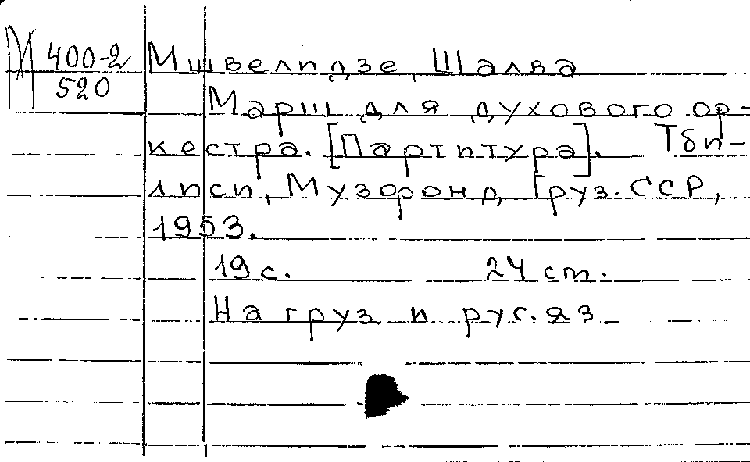 М 400-2
520
Мшвелидзе, Шалва
Марш для духового ор-
кестра. [Партитура]. Тби-
лиси, Музфонд Груз. ССР,
1953.
19 с. 24 см.
На груз и рус. яз